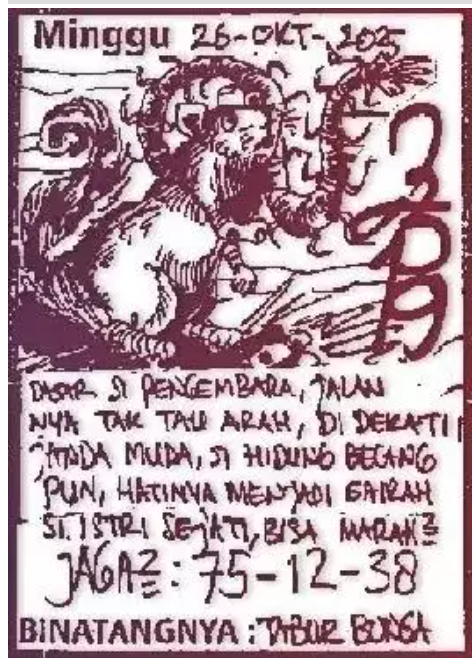 Minggu 26-OKT-2025
DASAR SI PENGEMBARA, JALAN
NYA TAK TAU ARAH, DI DEKATI
JANDA MUDA, SI HIDUNG BELANG
PUN, HATINYA MENJADI GAIRAH
SI ISTRI SEJATI, BISA MARAH2
JAGA2: 75-12-38
BINATANGNYA : TABUR BUNGA